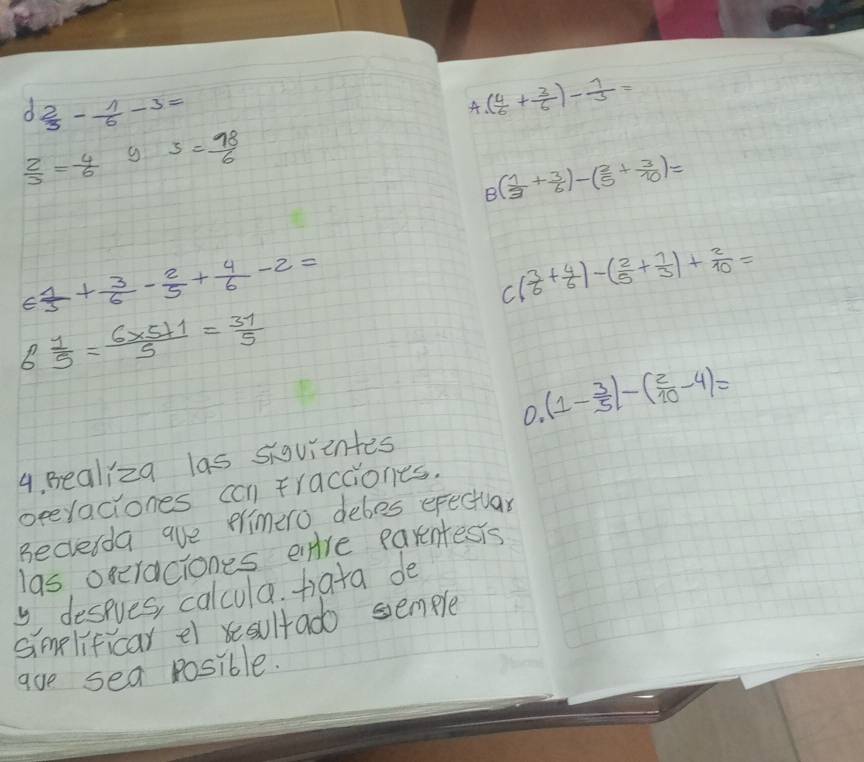 d 2/3 - 1/6 - 3 =
2/3 = 4/6 y 3 = 18/6
E 1/5 + 3/6 - 2/5 + 4/6 - 2 =
6 1/5 = 6x5+1/5 = 31/5
4. Realiza las siguientes
operaciones con fracciones.
Recuerda que primero debes efectuar
las operaciones entre parentesis
y despues, calcula. trata de
simplificar el resultado siemple
que sea posible.
A. (4/6 + 3/6) - 1/3 =
B (1/3 + 3/6) - (2/5 + 3/10) =
C (3/6 + 4/6) - (2/5 + 1/5) + 2/10 =
D. (1 - 3/5) - (2/10 - 4) =